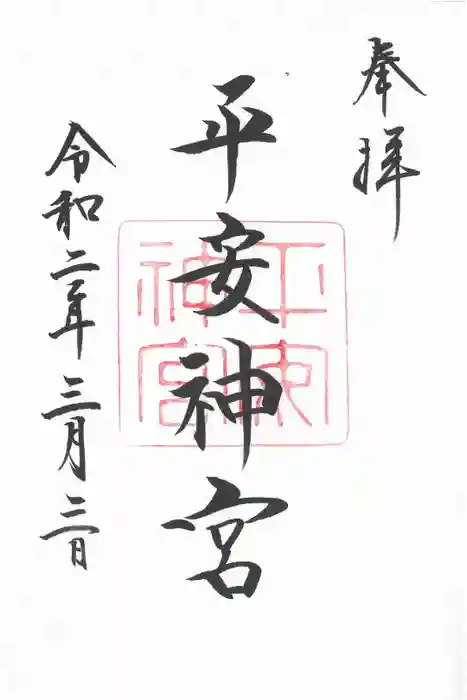 奉拝
平安神宮
令和二年三月三日
平安
神宮